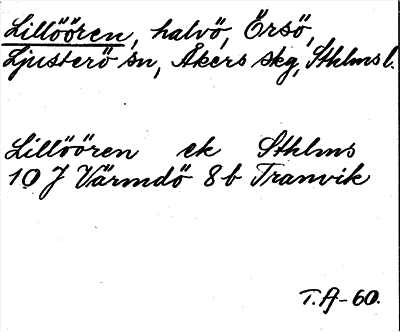 Lillöören, halvö, Örsö,
Ljusterö sn, Åkers skg, Sthlms l.
Lillöören ek Sthlms
10 J Värmdö 8 b Tranvik
T. A-60.